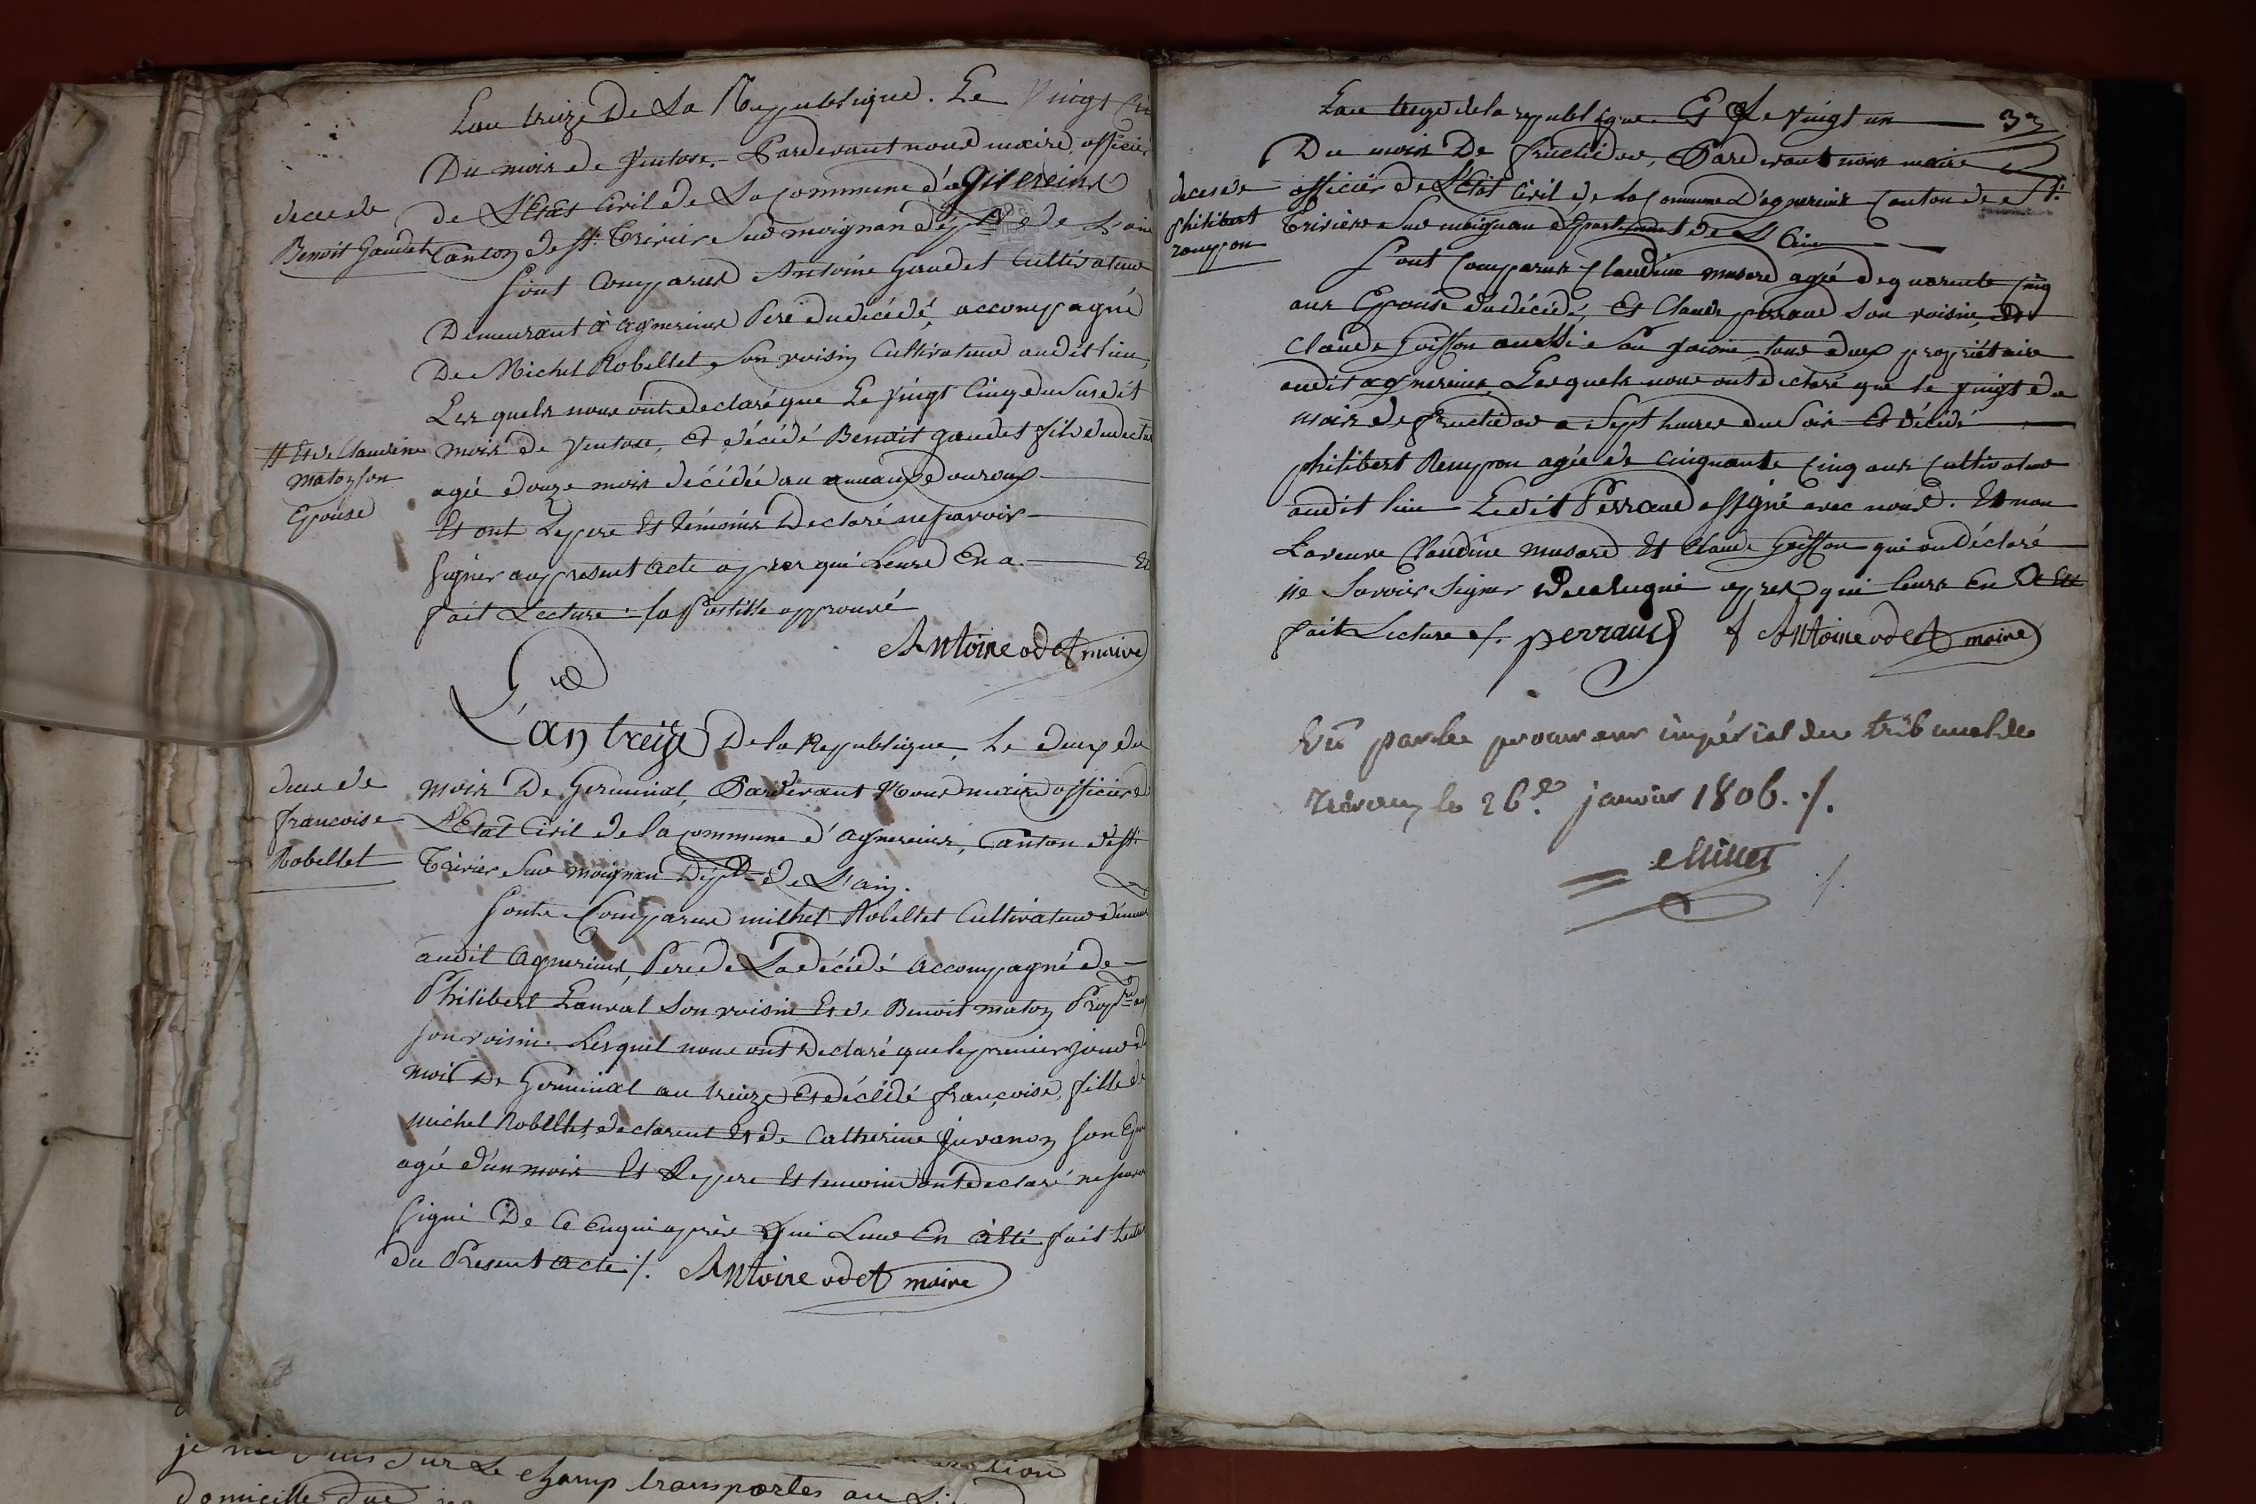 Lan treize De La Republique. Le Vingt
Du mois de Ventose. Pardevant nous maire officier
de L'Etat Civil de La Commune d'agnereins
deces de
Benoit Gaudet
Canton de St. Trivier Sur moignan Dépt. de L'ain
Sont Comparus Antoine Gaudet Cultivateur
Demeurant à agnereins Pere du décédé, accompagné
De Michel Robellet Son voisin Cultivateur audit lieu,
Lesquels nous ont declaré que Le vingt Cinq du Susdit
mois de Ventose, Et décédé Benoit gaudet fils du
# Et de Claudine
matoyson
Epouse
agé douze mois décédé au
Et ont Le pere Et témoins Declaré ne savoir
Signer au present Acte apres qui Leurs En a
fait Lecture. la Postille approuvé
Antoine odet maire
L'an treize De la Republique, Le deux du
deces de
francoise
Robellet
mois De Germinal, Pardevant Nous maire officier d
L'Etat Civil de la Commune d'agnereins, Canton de St.
Trivier Sur moignan Dépt. de L'ain.
Sont Comparus michel Robellet Cultivateur
audit Agnereins, Pere de La décédé accompagné de
Philibert Lanval Son voisin Et de Benoit matoy Propre.
Son voisin Lesquel nous ont Declaré que le premier jour
mois De Germinal an treize Et décédé françoise, fille de
michel Robellet declarent Et de Catherine juvanon son
agé d'un mois Et Le pere Et temoins ont declaré ne
Signé De Ce Enquis après qui Leur En à Été fait
du Present acte ./. Antoine odet maire
33
Lan treize de la republique. Et Le Vingt un
Du mois De fructidor, Pardevant nous maire
deces de
philibert
rompon
officier de L'Etat Civil de La Commune D'agnereins Canton de St.
Triviere Sur moignan departement de L'Ain
Sont Comparus Claudine musard agé de quarente Cinq
ans Epouse du décédé, Et Claude perraud Son voisin, Et
Claude Goiffon aussi Son voisin tous deux propriétaire
audit agnereins Lesquels nous ont declaré que le vingt du
mois de fructidor a Sept heures du Soir Et décédé
philibert Rompon agée de Cinquante Cinq ans Cultivateur
audit lieu Ledit Perraud a signé avec nous. Et non
La veuve Claudine musard Et Claude Goiffon qui on Déclaré
ne Savoir Signer De ce enquis apres qui leurs En A Eté
fait Lecture ./. perraud Antoine odet maire
Vû par le procureur impérial du tribunal de
Trévoux, le 26.e janvier 1806. ./.